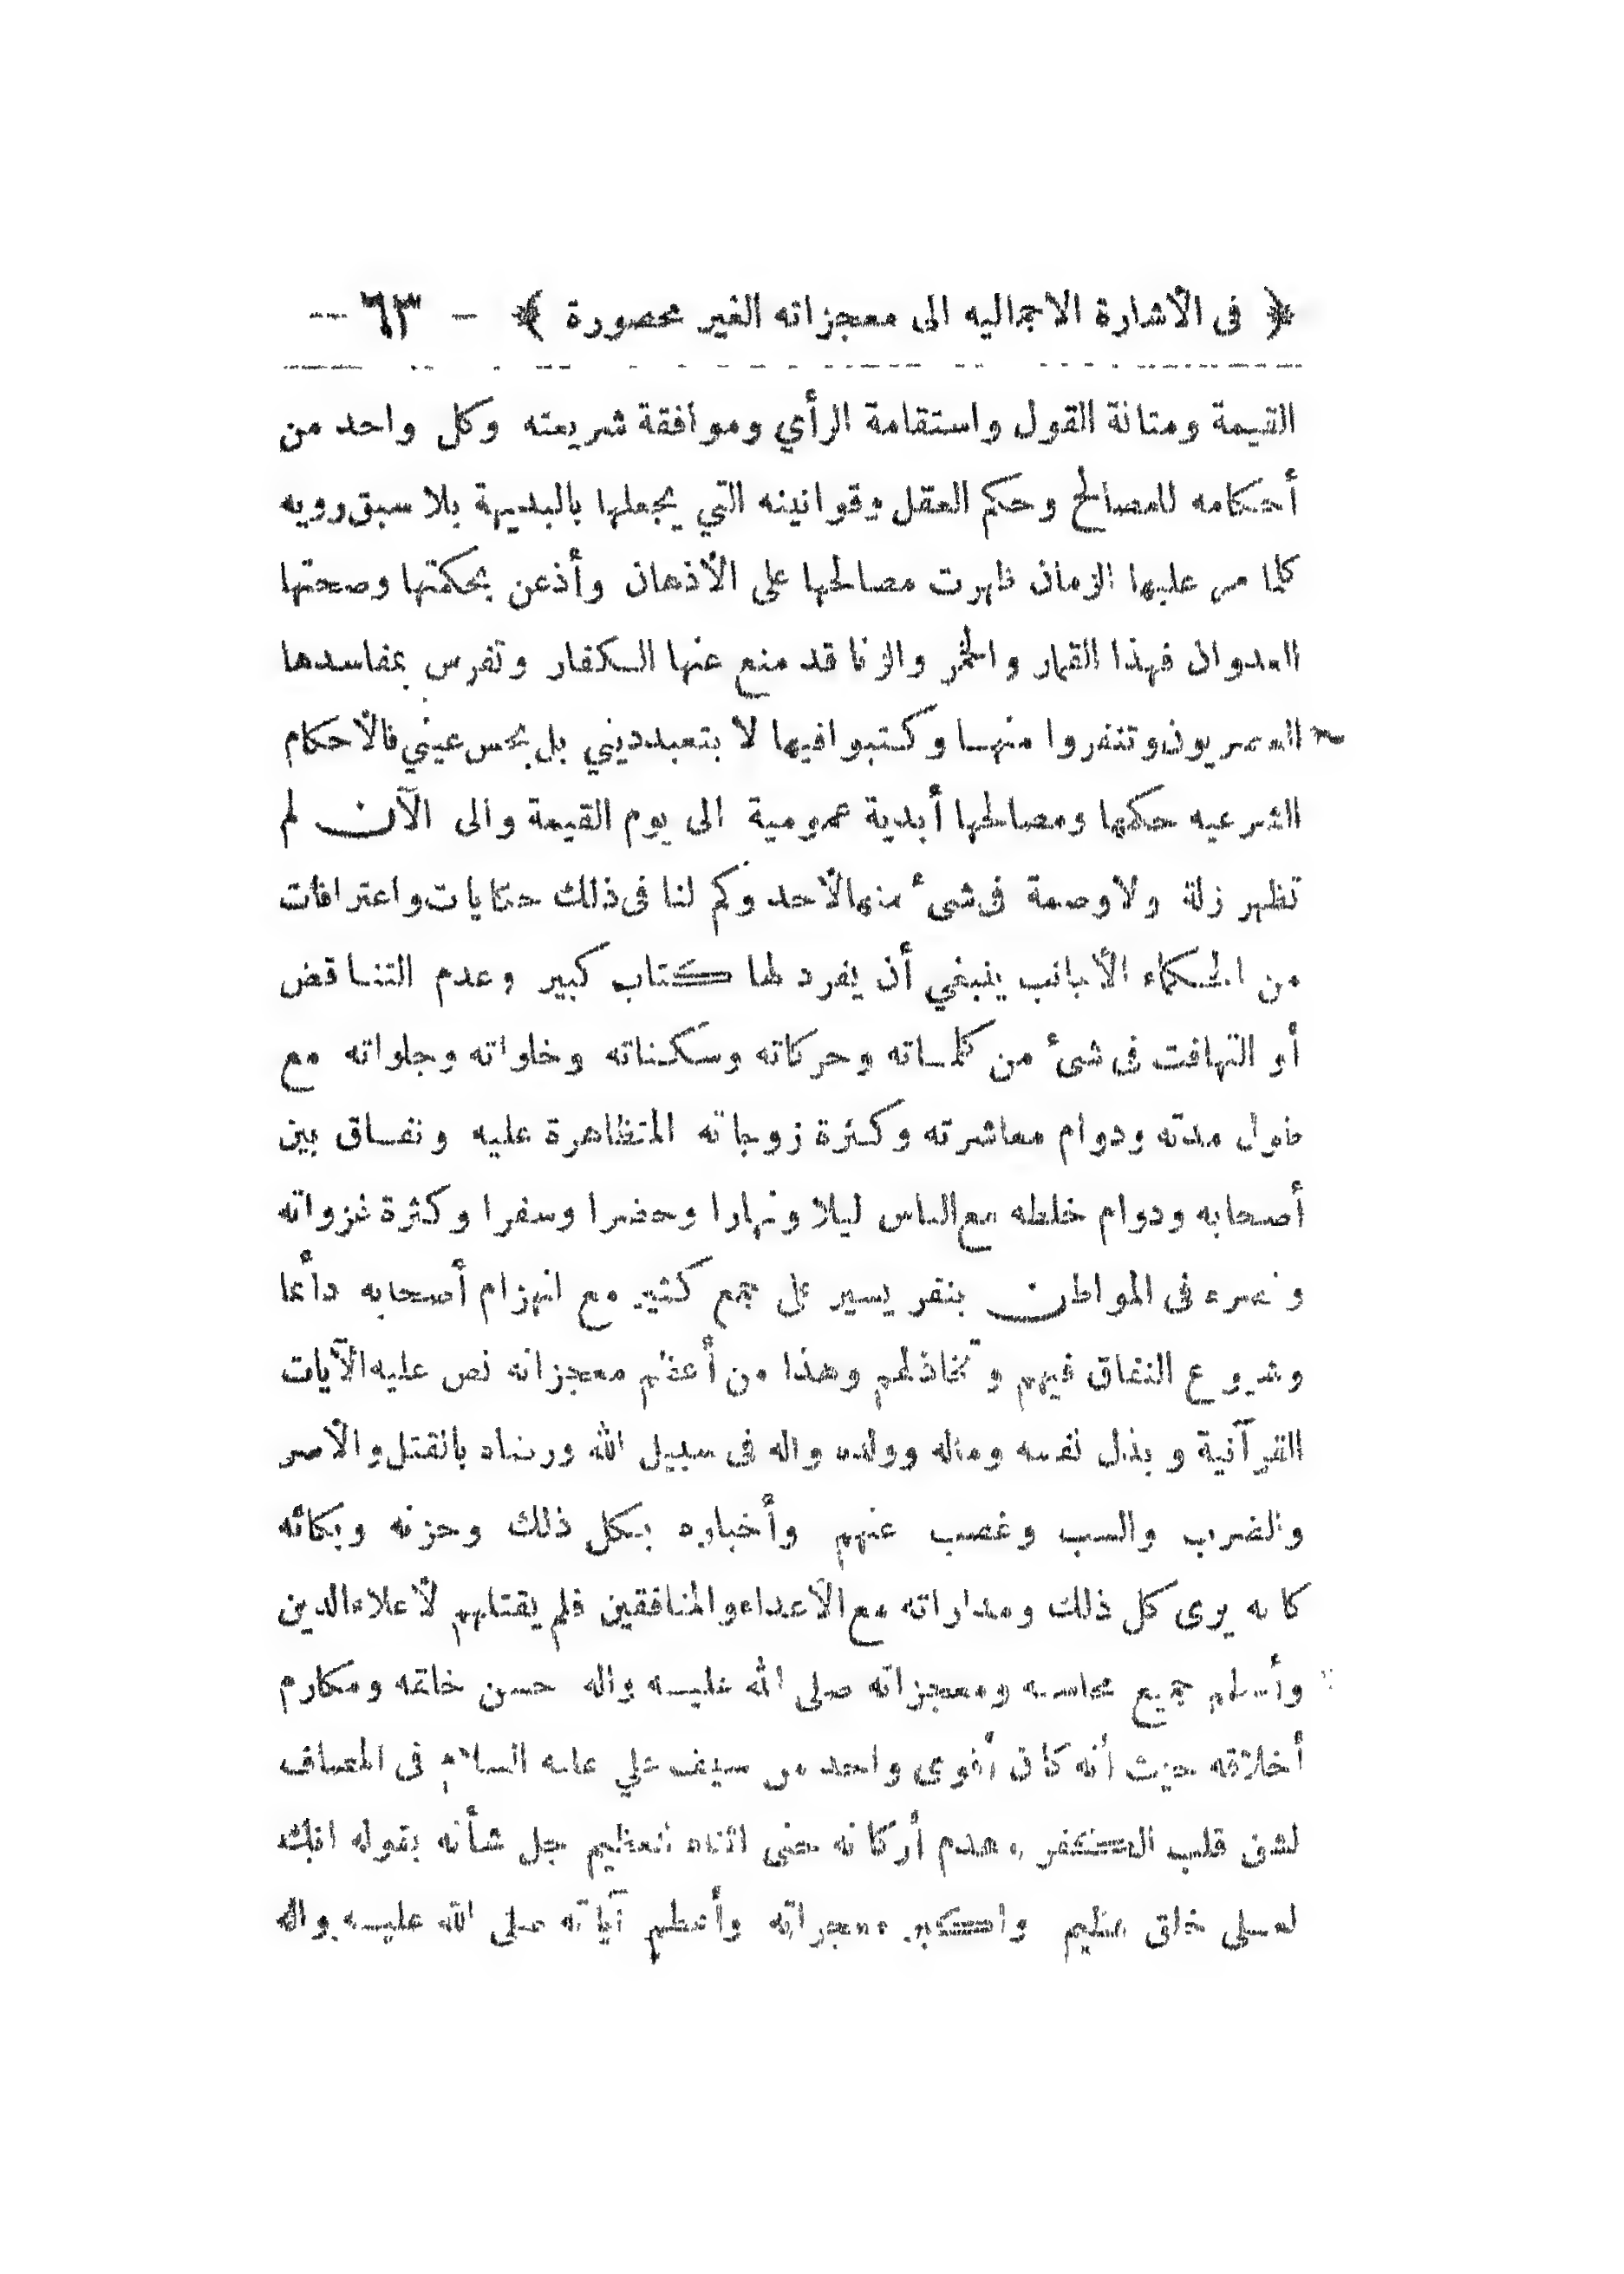 ﴿ فى الأشارة الاجماليه الى معجزاته الغير محصورة ﴾ - ٦٣ --
القيمة ومتانة القول واستقامة الرأي وموافقة شريعته وكل واحد من
أحكامه للمصالح وحكم العقل وقوانينه التي يجعلها بالبديهة بلا سبق رويه
كلما مر عليها الزمان ظهرت مصالحها على الأذهان وأذعن بحكمتها وصحتها
العدوان فهذا القمار والخمر والزنا قد منع عنها الكفار وتفرس بمفاسدها
العصريون وتنفروا منها وكتبوا فيها لا بتعبد ديني بل بحس عيني فالأحكام
الشرعيه حكمها ومصالحها أبدية عمومية الى يوم القيمة والى الآن لم
تظهر زلة ولا وصمة فى شىء منها لأحد وكم لنا فى ذلك حكايات واعترافات
من الحكماء الأجانب ينبغي أن يفرد لها كتاب كبير وعدم التناقض
أو التهافت فى شىء من كلماته وحركاته وسكناته وخلواته وجلواته مع
طول مدته ودوام معاشرته وكثرة زوجاته المتظاهرة عليه ونفاق بين
أصحابه ودوام خلطه مع الناس ليلا ونهارا وحضرا وسفرا وكثرة غزواته
ونصره فى المواطن بنفر يسير على جمع كثير مع انهزام أصحابه دائما
وشيوع النفاق فيهم وتخاذلهم وهذا من أعظم معجزاته نص عليه الآيات
القرآنية وبذل نفسه وماله وولده واله فى سبيل الله ورضاه بالقتل والأسر
والضرب والسب وغصب عنهم وأخباره بكل ذلك وحزنه وبكائه
كانه يرى كل ذلك ومداراته مع الأعداء والمنافقين فلم يقتلهم لأعلاء الدين
وأسلم جميع محاسنه ومعجزاته صلى الله عليه واله حسن خلقه ومكارم
أخلاقه حيث أنه كان أقوى واحد من سيف علي عليه السلام فى المصاف
لشق قلب الكفر وهدم أركانه حتى اثناه العظيم جل شأنه بقوله انك
لعلى خلق عظيم واكبر معجزاته وأعظم آياته صلى الله عليه واله